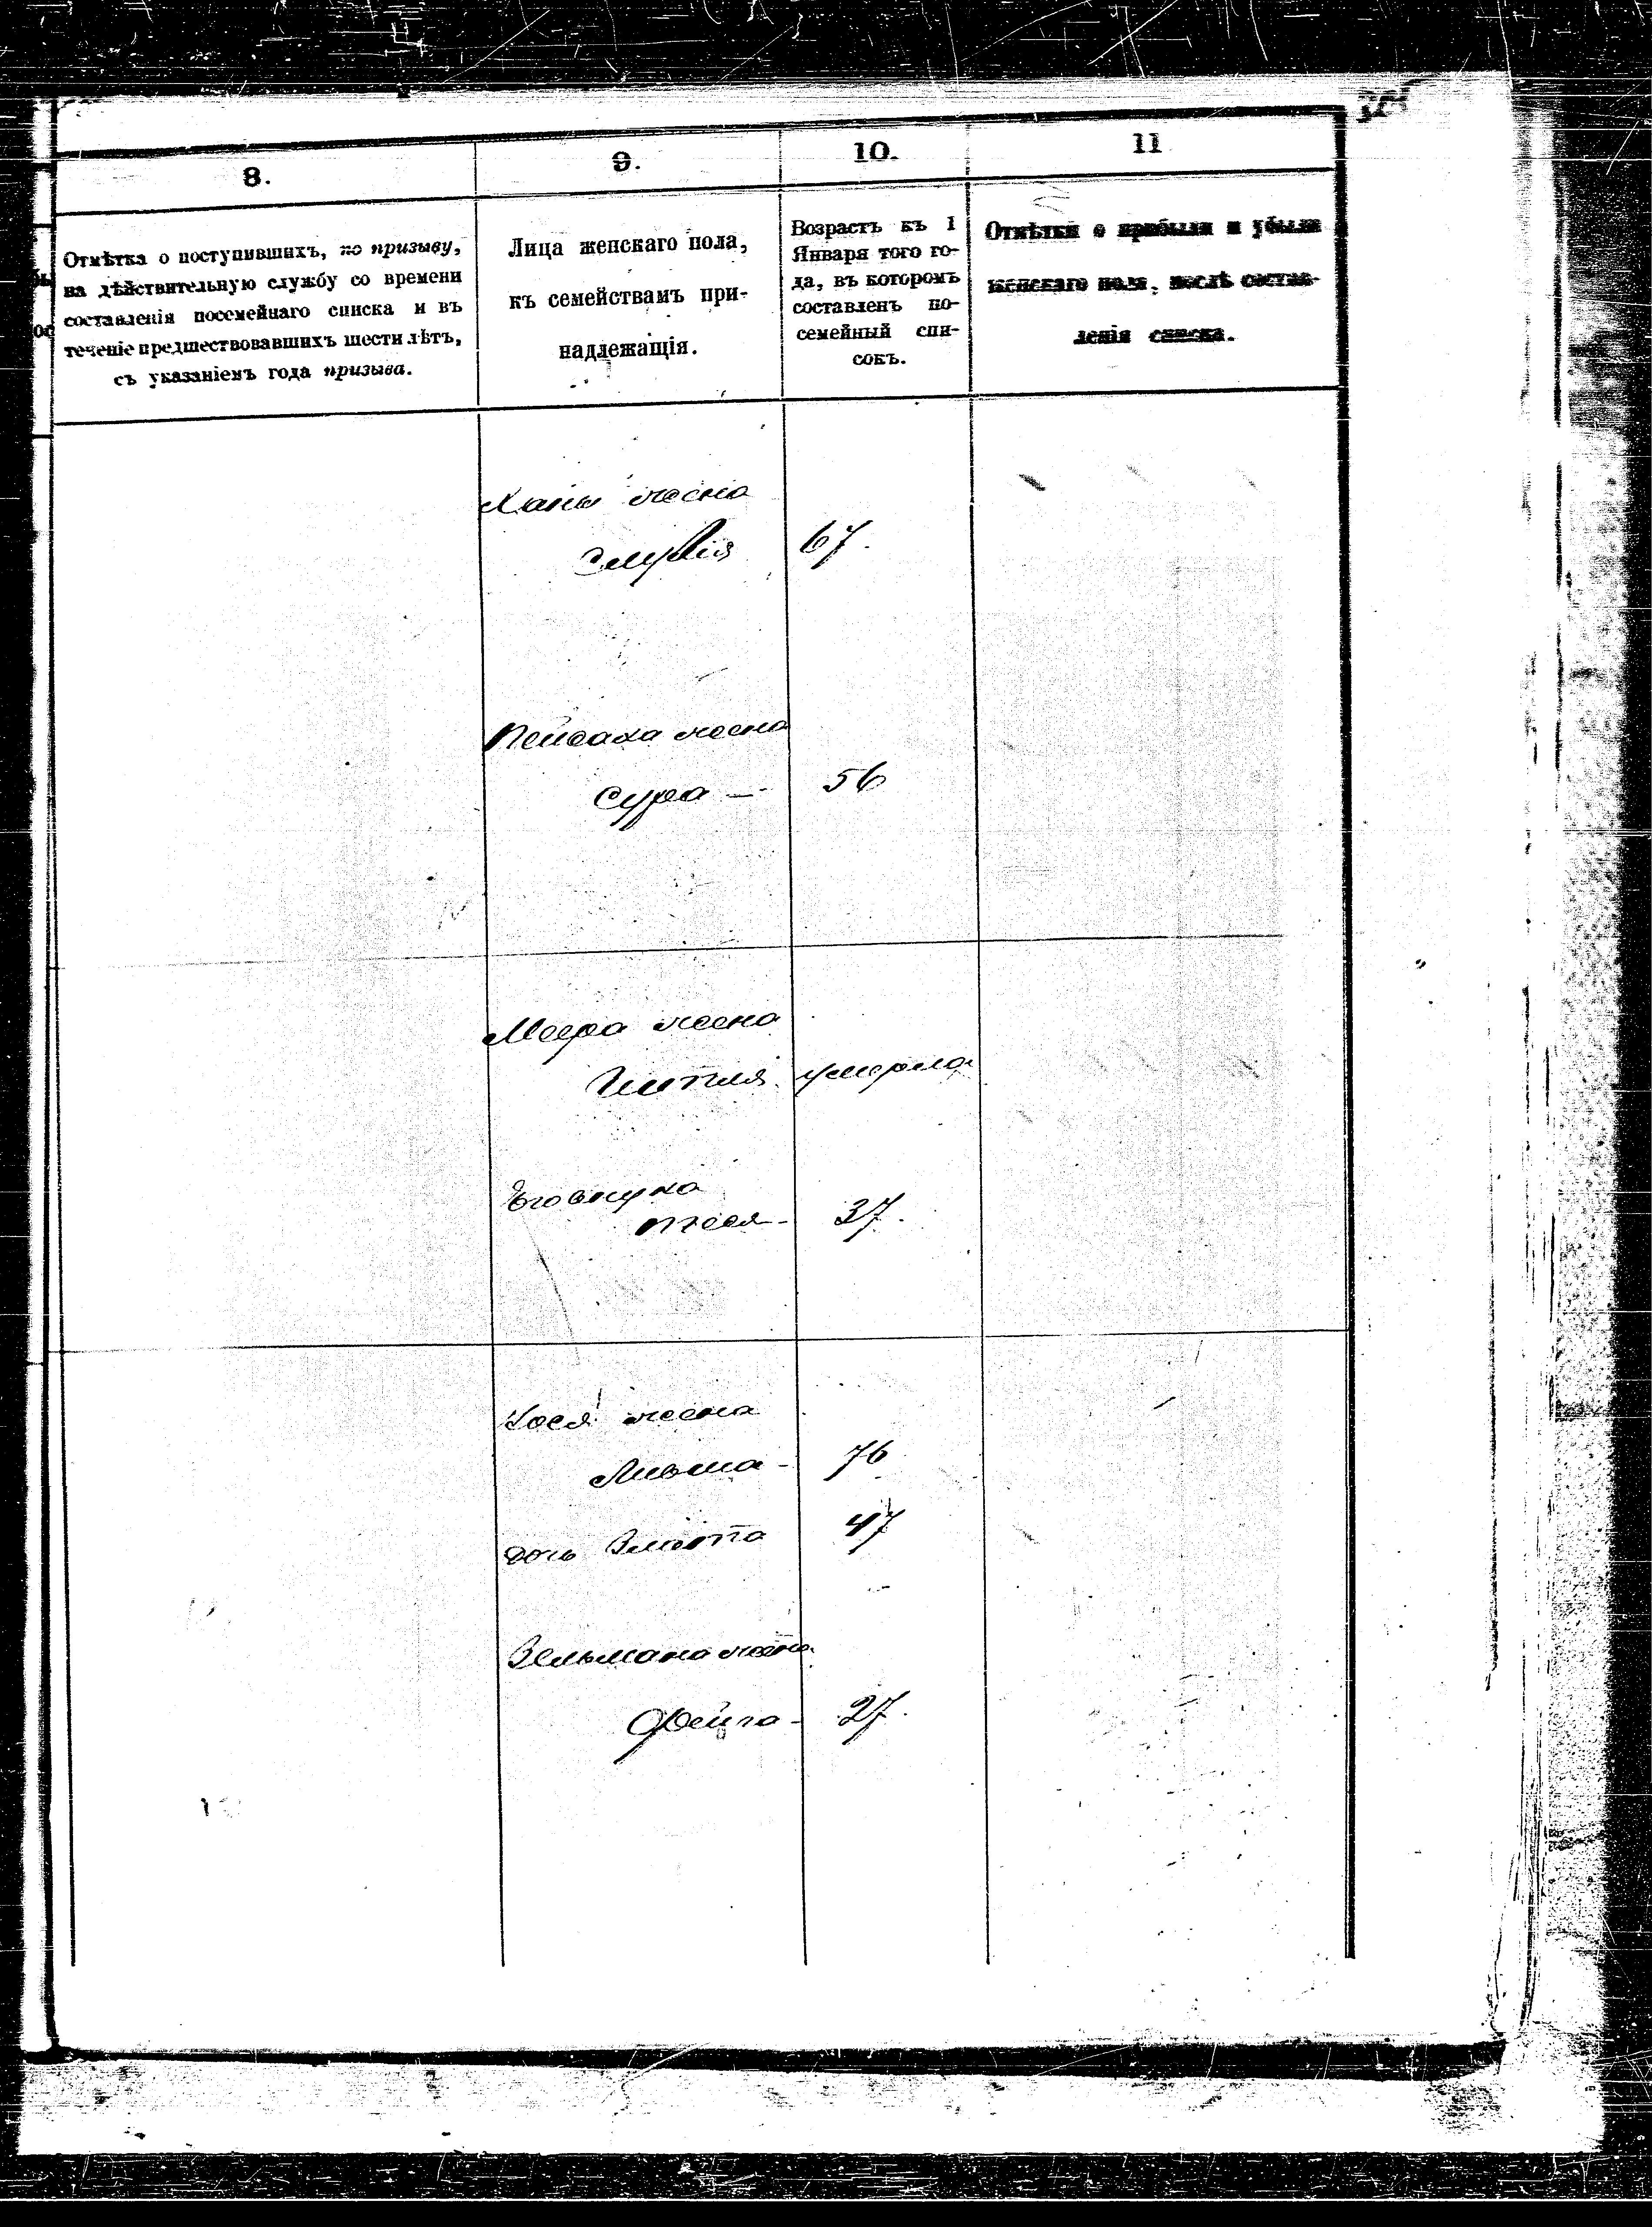 8.
9.
10.
11
Отмѣтка о поступившихъ, по призыву,
на дѣйствительную службу со времени
составленія посемейнаго списка и въ
теченіе предшествовавшихъ шести лѣтъ,
съ указаніемъ года призыва.
Лица женскаго пола,
къ семействамъ при-
надлежащія.
Возрастъ къ 1
Января того го-
да, въ которомъ
составленъ по-
семейный спи-
сокъ.
Отмѣтки о прибыли и убыли
женскаго пола, послѣ состав-
ленія списка.
жена
67.
Пейсаха жена
Сура — 56
Меера жена
умерла
Его внука
37.
жена
76
дочь Злота 47
Зельмана жена
Фейга - 27.